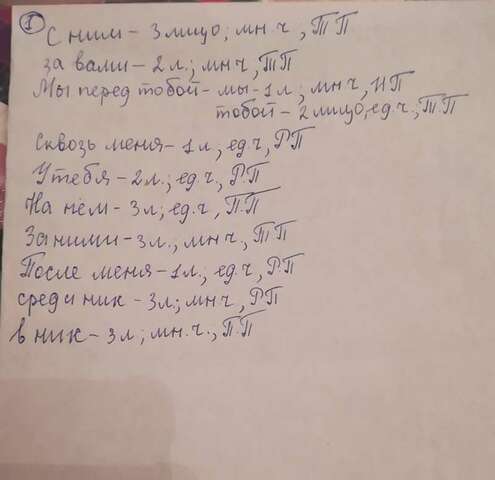 1 С ним - 3 лицо; мн ч, ТП
за вами - 2 л.; мн ч, ТП
Мы перед тобой - мы - 1 л; мн ч, ИП
тобой - 2 лицо, ед. ч., ТП
Сквозь меня - 1 л; ед. ч, РП
У тебя - 2 л.; ед. ч, Р.П
На нём - 3 л; ед. ч, П.П
За ними - 3 л.; мн ч, ТП
После меня - 1 л.; ед. ч, Р.П
среди них - 3 л; мн ч, Р.П
в них - 3 л; мн. ч., П.П